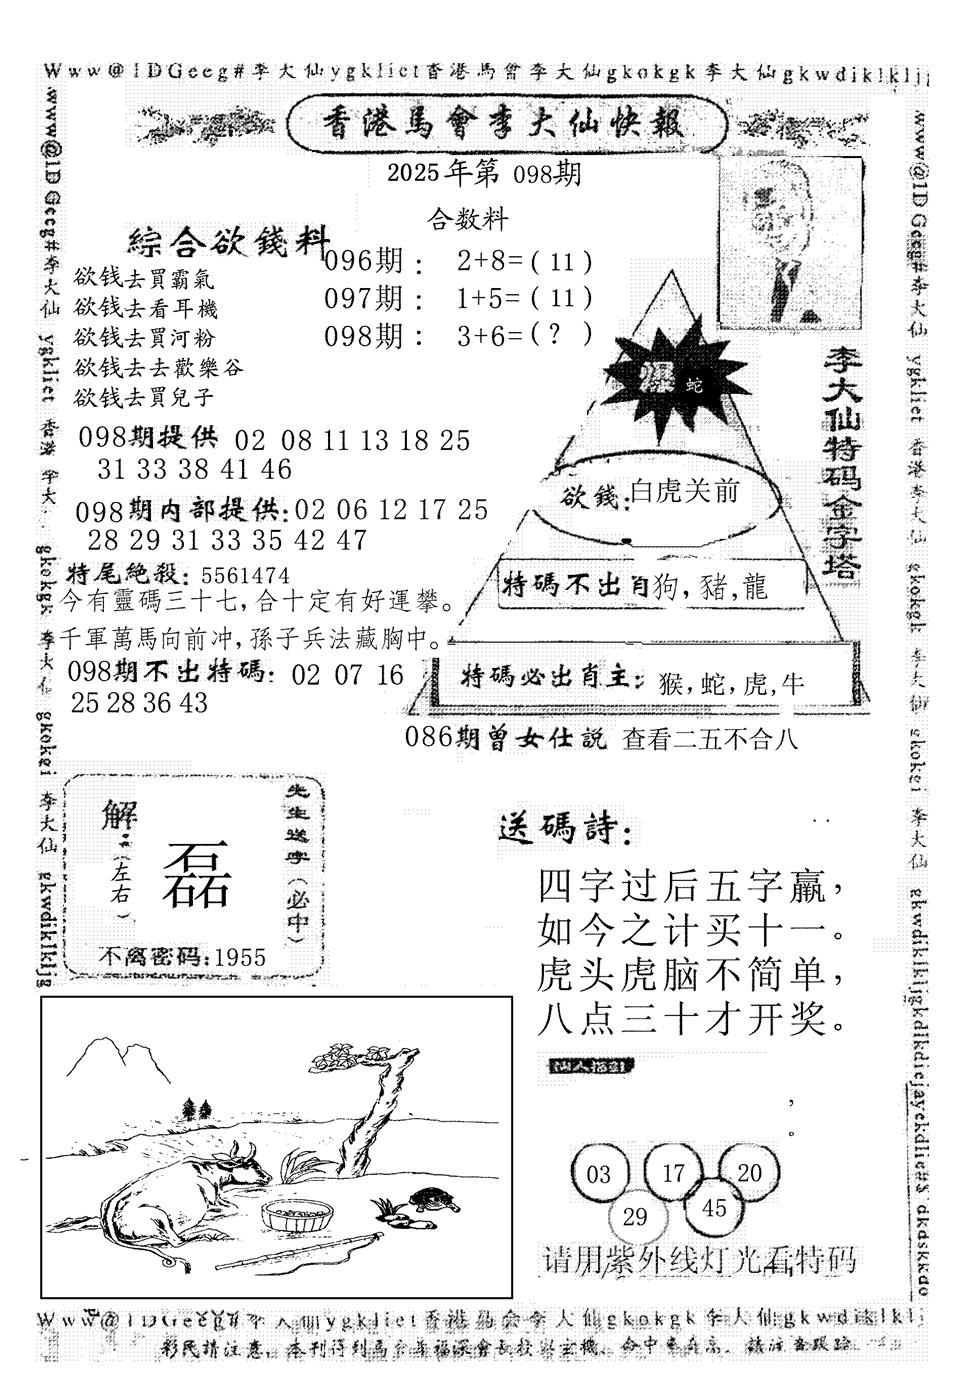 Www@1DGeeg#李大仙ygkliet香港馬會李大仙gkokgk李大仙gkwdiklkljg
香港馬會李大仙快報
2025年第 098期
合数料
綜合欲錢料
欲钱去買霸氣
欲钱去看耳機
欲钱去買河粉
欲钱去去歡樂谷
欲钱去買兒子
096期： 2+8=( 11 )
097期： 1+5=( 11 )
098期： 3+6=( ? )
098期提供 02 08 11 13 18 25
31 33 38 41 46
098期内部提供:02 06 12 17 25
28 29 31 33 35 42 47
特尾絶殺: 5561474
今有靈碼三十七,合十定有好運攀。
千軍萬馬向前冲,孫子兵法藏胸中。
098期不出特碼: 02 07 16
25 28 36 43
李大仙特码金字塔
爆 蛇
欲錢:白虎关前
特碼不出肖狗,豬,龍
特碼必出肖主: 猴,蛇,虎,牛
086期曾女仕説 查看二五不合八
先生送字(必中)
解:(左右)
磊
不离密码:1955
送碼詩:
四字过后五字赢，
如今之计买十一。
虎头虎脑不简单，
八点三十才开奖。
，
。
03 17 20
29 45
请用紫外线灯光看特码
www@1DGeeg#李大仙 ygkliet 香港 李大 gkokgk 李大仙 gkokei 李大仙 gkwdiklkljg
www@1DGeeg#李大仙 ygkliet 香港李大仙 gkokgk 李大仙 gkokei 李大仙 gkwdiklkljgkdlkdiejayekdlie#$ dkdskkdo
Www@1DGeeg#李大仙ygkliet香港馬会李大仙gkokgk李大仙gkwdiklklj